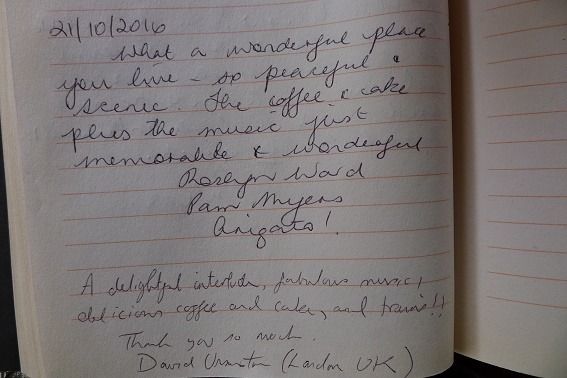 21/10/2016
What a wonderful place
you live - so peaceful &
scenic. The coffee & cake
plus the music just
memorable & wonderful
Roslyn Ward
Pam Myers
Arigato!
A delightful interlude, fabulous music,
delicious coffee and cake, and trains!!
Thank you so much.
David Urmston (London UK)